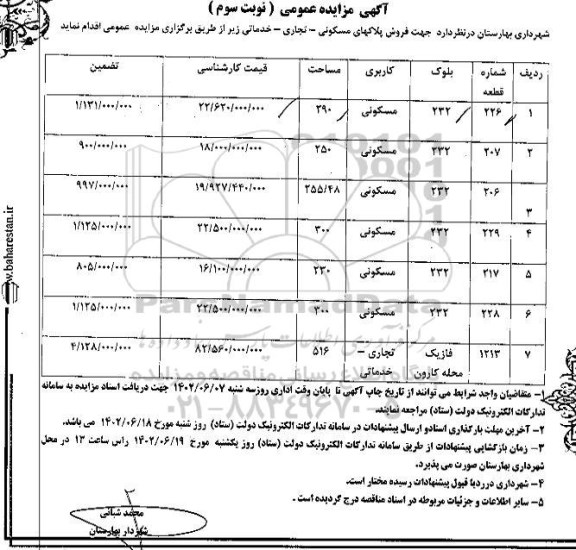 آگهی مزایده عمومی ( نوبت سوم )
شهرداری بهارستان درنظردارد جهت فروش پلاکهای مسکونی – تجاری – خدماتی زیر از طریق برگزاری مزایده عمومی اقدام نماید
ردیف شماره قطعه بلوک کاربری مساحت قیمت کارشناسی تضمین
۱ ۲۲۶ ۲۳۲ مسکونی ۳۹۰ ۲۲/۶۲۰/۰۰۰/۰۰۰ ۱/۱۳۱/۰۰۰/۰۰۰
۲ ۲۰۷ ۲۳۲ مسکونی ۲۵۰ ۱۸/۰۰۰/۰۰۰/۰۰۰ ۹۰۰/۰۰۰/۰۰۰
۳ ۲۰۶ ۲۳۲ مسکونی ۲۵۵/۴۸ ۱۹/۹۲۷/۴۴۰/۰۰۰ ۹۹۷/۰۰۰/۰۰۰
۴ ۲۲۹ ۲۳۲ مسکونی ۳۰۰ ۲۲/۵۰۰/۰۰۰/۰۰۰ ۱/۱۲۵/۰۰۰/۰۰۰
۵ ۲۱۷ ۲۳۲ مسکونی ۲۳۰ ۱۶/۱۰۰/۰۰۰/۰۰۰ ۸۰۵/۰۰۰/۰۰۰
۶ ۲۲۸ ۲۳۲ مسکونی ۳۰۰ ۲۲/۵۰۰/۰۰۰/۰۰۰ ۱/۱۲۵/۰۰۰/۰۰۰
۷ ۱۲۱۳ فازیک محله کارون تجاری – خدماتی ۵۱۶ ۸۲/۵۶۰/۰۰۰/۰۰۰ ۴/۱۲۸/۰۰۰/۰۰۰
۱– متقاضیان واجد شرایط می توانند از تاریخ چاپ آگهی تا پایان وقت اداری روزسه شنبه ۱۴۰۲/۰۶/۰۷ جهت دریافت اسناد مزایده به سامانه
تدارکات الکترونیک دولت (ستاد) مراجعه نمایند.
۲– آخرین مهلت بارگذاری اسنادو ارسال پیشنهادات در سامانه تدارکات الکترونیک دولت (ستاد) روز شنبه مورخ ۱۴۰۲/۰۶/۱۸ می باشد.
۳– زمان بازگشایی پیشنهادات از طریق سامانه تدارکات الکترونیک دولت (ستاد) روز یکشنبه مورخ ۱۴۰۲/۰۶/۱۹ راس ساعت ۱۳ در محل
شهرداری بهارستان صورت می پذیرد.
۴– شهرداری دررد‌یا قبول پیشنهادات رسیده مختار است.
۵– سایر اطلاعات و جزئیات مربوطه در اسناد مناقصه درج گردیده است .
محمد شبانی
شهردار بهارستان
www.baharestan.ir
ParsNamadData
۰۲۱-۸۸۳۴۹۶۷۰-۵